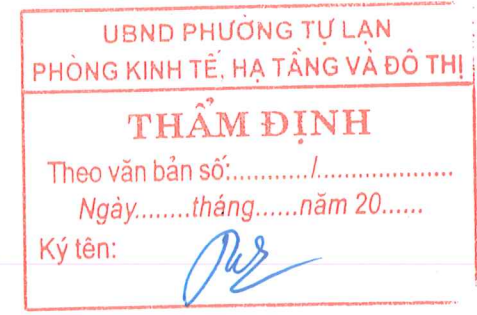 UBND PHƯỜNG TỰ LẠN
PHÒNG KINH TẾ, HẠ TẦNG VÀ ĐÔ THỊ
THẨM ĐỊNH
Theo văn bản số:............/.....................
Ngày........tháng......năm 20......
Ký tên: